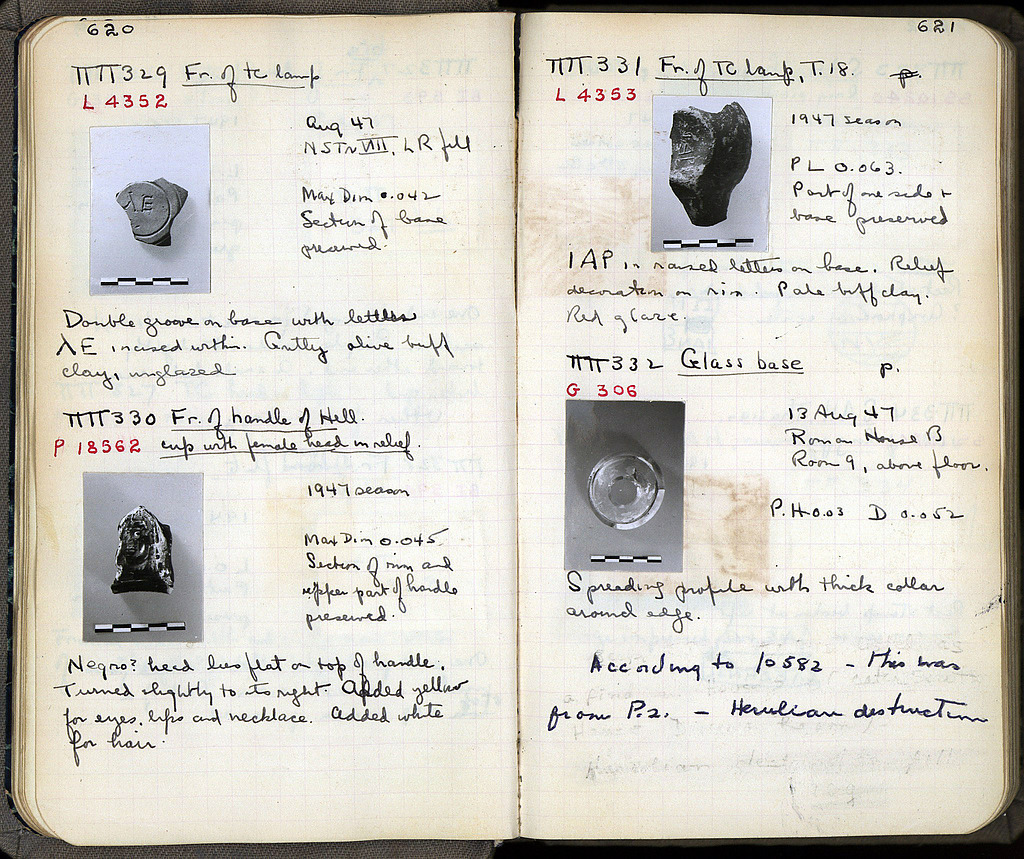 620
ΠΠ 329 Fr. of tc lamp
L 4352
Aug 47
NSTN VIII, LR fill
Max Dim 0.042
Section of base
preserved.
λE
Double groove on base with letters
λE incised within. Gritty olive buff
clay, unglazed
ΠΠ 330 Fr. of handle of Hell.
P 18562 cup with female head in relief.
1947 season
Max Dim 0.045.
Section of rim and
upper part of handle
preserved.
Negro? head lies flat on top of handle.
Turned slightly to its right. Added yellow
for eyes, lips and necklace. Added white
for hair.
621
ΠΠ 331 Fr. of TC lamp, T.18. p.
L 4353
1947 season
P L 0.063.
Part of one side +
base preserved
IAP in raised letters on base. Relief
decoration on rim Pale buff clay.
Red glaze.
ΠΠ 332 Glass base p.
G 306
13 Aug 47
Roman House B
Room 9, above floor.
P.H 0.03 D 0.052
Spreading profile with thick collar
around edge.
According to 10582 - this was
from P.2. - Herulian destruction